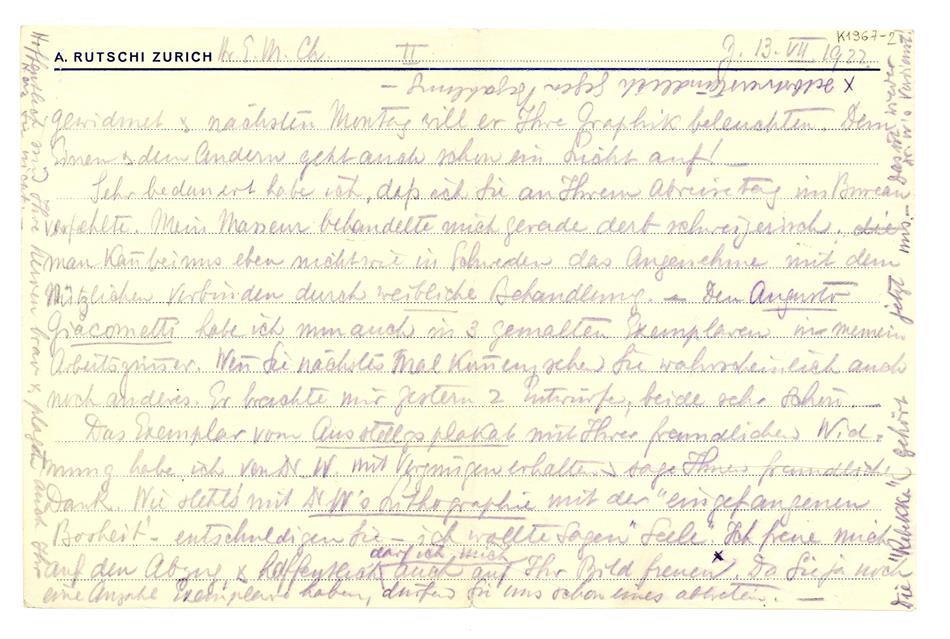 A. RUTSCHI ZURICH Hr. E. M. Ch. II Z. 13. VII 1922
K1967-2
x selbstverständlich gegen Bezahlung –
gewidmet & nächsten Montag will er Ihre Graphik beleuchten. Dem
Einen & dem Andern geht auch schon ein Licht auf! –
Sehr bedauert habe ich, daß ich Sie an Ihrem Abreisetag im Bureau
verfehlte. Mein Masseur behandelte mich gerade derb schweizerisch, die
man kan̄ bei uns eben nicht wie in Schweden das Angenehme mit dem
Nützlichen verbinden durch weibliche Behandlung. – Den Augusto
Giacometti habe ich nun auch in 3 gemalten Exemplaren in meinem
Arbeitszimmer. Wen̄ Sie nächstes Mal kom̄en, sehen Sie wahrscheinlich auch
noch anderes. Er brachte mir gestern 2 Entwürfe, beide sehr schön. –
Das Exemplar vom Ausstellgsplakat mit Ihrer freundlichen Wid-
mung habe ich von Dr W. mit Vergnügen erhalten & sage Ihnen freundlich.
Dank. Wie steht's mit Dr W's Lithographie mit der "eingefangenen
Bosheit" – entschuldigen Sie – ich wollte sagen "Seele". Ich freue mich
auf den Abzug & hoffentlich darf ich mich auch auf Ihr Bild freuen x. Da Sie ja noch
eine Anzahl Exemplare haben, dürfen Sie uns schon eines abtreten. –
Hoffentlich sind Ihre Nerven brav & plagen auch Ihr
Herz Sie nicht.
Die "Rebekka" gehört jetzt uns. – Das ist wieder